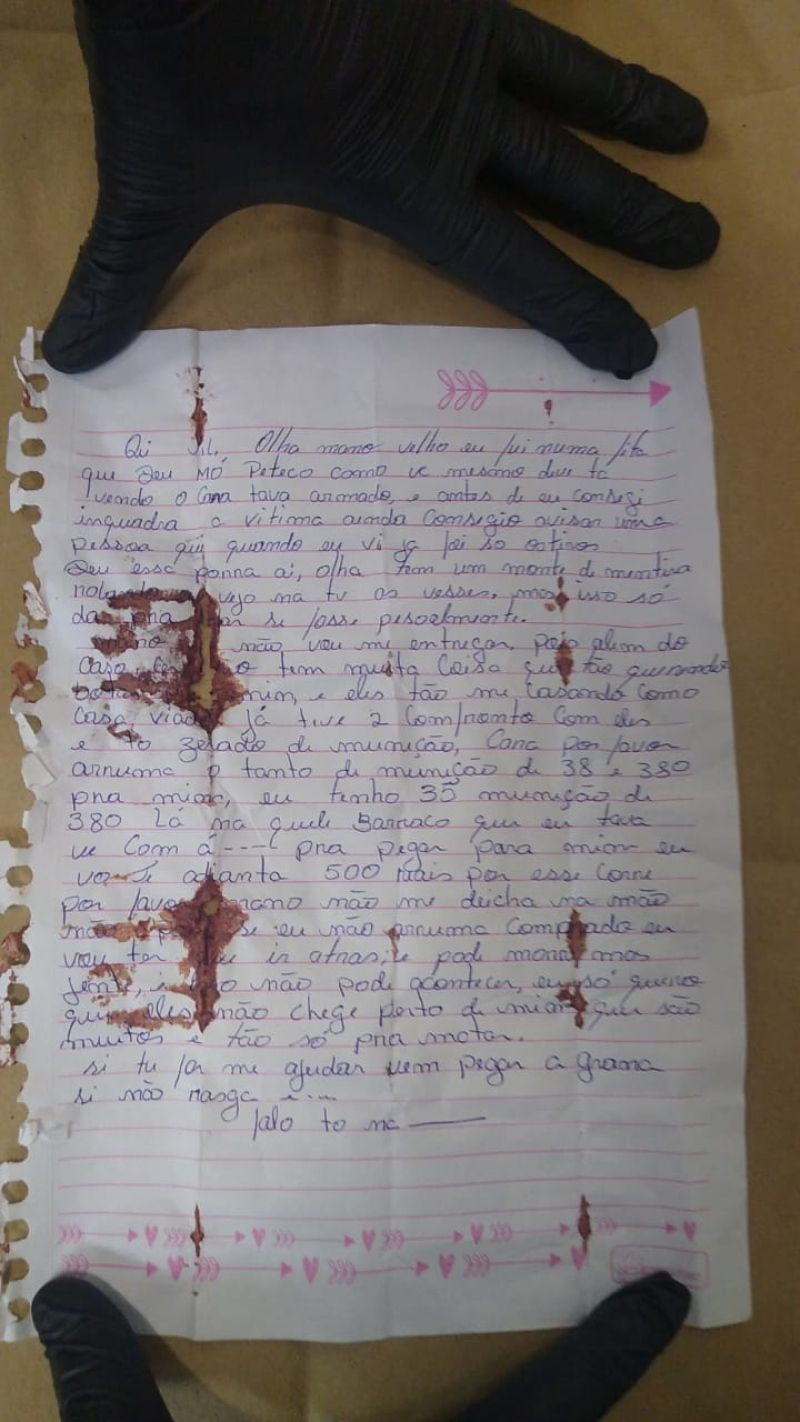 Olha mano velho eu fui numa fita
que Deu MÓ Peteco como vc mesmo deve tá
vendo o Cana tava armado, e antes de eu consegi
inquadra a vitima ainda Consegio avisar uma
pessoa qui quando eu vi ja foi so os tiros
Deu essa porra ai, olha tem um monte de mentira
vejo na tv as vesses, mas isso só
das pra se fosse pesoalmente.
mano não vou me entregar, pois alem do
Caso tem muita Coisa que tão querendo
mim, e eles tão me Casando Como
Casa viado já tive 2 Comfronto Com eles
e to zerado de munição, Cara por favor
arruma o tanto de munição de 38 e 380
pra mior, eu tenho 35 munição de
380 Lá na quele Barraco que eu tava
ve Com á ---- pra pegar para mior eu
vo Te adianta 500 mais por esse Corre
por favor mano não me deicha na mão
não se eu não arruma Comprado eu
vou ter que ir atras, e pode morar mas
jente, e isso não pode acontecer, eu só quero
que eles não chege perto de mior que são
muitos e tão só pra matar.
si tu for me ajudar vem pegar a grana
si não rasga e...
falo to na ———